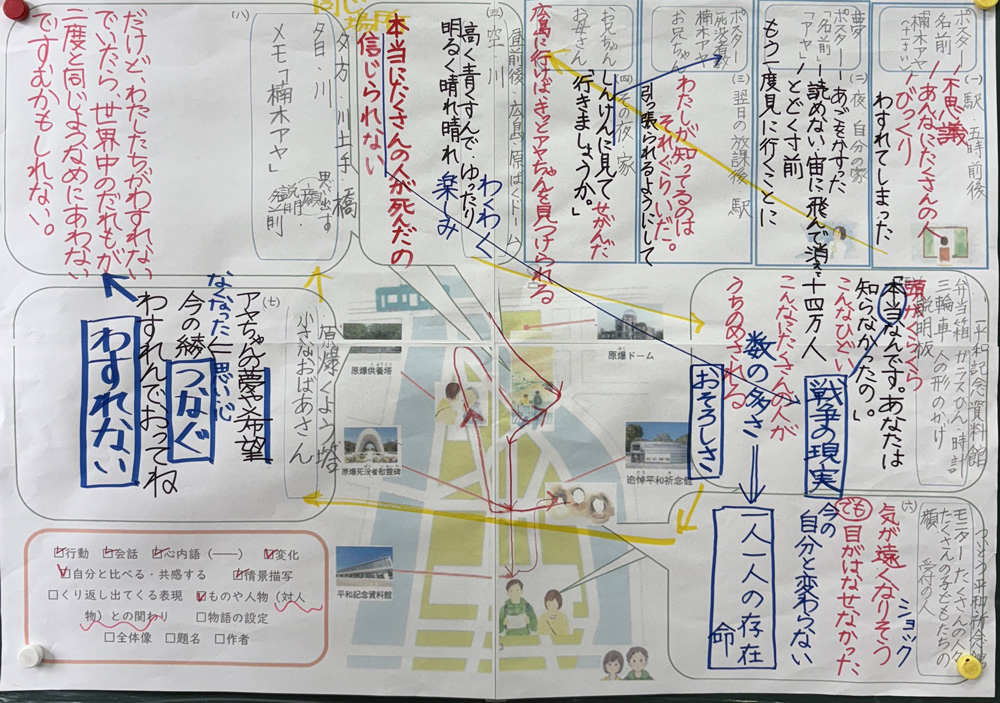 (一)駅・五時前後
ポスター
名前
楠木アヤ
不思議
あんなにたくさんの人
びっくり
わすれてしまった
(二)夜 自分の家
夢
ポスター
「名前」
「アヤ」
あごをかすった
読めない宙に飛んで消え
とどく寸前
もう一度見に行くことに
(三)翌日の放課後 駅
ポスター
死没者数
楠木アヤ
お兄ちゃん
わたしが知ってるのは
それぐらいだ。
引っ張られるようにして
(四)その夜 家
お兄ちゃん
お母さん
しんけんに見てせがんだ
「行きましょうか。」
広島に行けばきっとアヤちゃんを見つけられる
同じ場所
(五)
昼前後・広島・原ばくドーム
空・川
高く青くすんで ゆったり
明るく晴れ晴れ
わくわく
楽しみ
本当にたくさんの人が死んだの
信じられない
平和記念資料館
弁当箱 ガラスびん 時計
三輪車 人の形のかげ
説明板
頭がくらくら
「本当なんです。あなたは
知らなかったの。」
十四万人
こんなひどい
こんなにたくさんの人が
うちのめされる
戦争の現実
数の多さ
おそろしさ
(六)
ついとう平和祈念館
モニター たくさんの人々
たくさんの子どもたちの
顔 受付の人
ショック
気が遠くなりそう
でも
目がはなせなかった
今の
自分と変わらない
一人一人の存在
命
(七)
原爆くよう塔
小さなおばあさん
アヤちゃん夢や希望
なくなった
思い 心
今の綾
つなぐ
わすれんでおってね
わすれない
(八)
夕方・川土手・橋
夕日・川
思い出す
顔
説明
名前
メモ「楠木アヤ」
だけど、わたしたちがわすれない
でいたら、世界中のだれもが
二度と同じようなめにあわない
ですむかもしれない。
原爆供養塔
原爆ドーム
原爆死没者慰霊碑
追悼平和祈念館
平和記念資料館
☑行動 ☑会話 ☑心内語(――) ☑変化
☑自分と比べる・共感する ☑情景描写
□くり返し出てくる表現 ☑ものや人物(対人
物)との関わり □物語の設定
□全体像 □題名 □作者